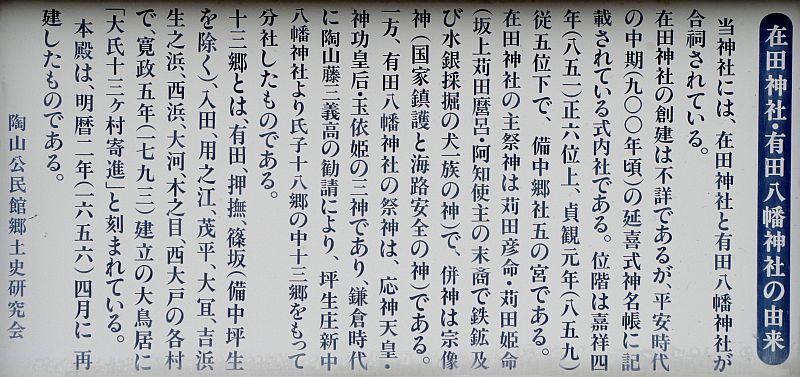 在田神社・有田八幡神社の由来
当神社には、在田神社と有田八幡神社が
合祠されている。
在田神社の創建は不詳であるが、平安時代
の中期(九〇〇年頃)の延喜式神名帳に記
載されている式内社である。位階は嘉祥四
年(八五一)正六位上、貞観元年(八五九)
従五位下で、備中郷社五の宮である。
在田神社の主祭神は苅田彦命・苅田姫命
(坂上苅田麿呂・阿知使主の末裔で鉄鉱及
び水銀採掘の犬一族の神)で、併神は宗像
神(国家鎮護と海路安全の神)である。
一方、有田八幡神社の祭神は、応神天皇・
神功皇后・玉依姫の三神であり、鎌倉時代
に陶山藤三義高の勧請により、坪生庄新中
八幡神社より氏子十八郷の中十三郷をもって
分社したものである。
十三郷とは、有田、押撫、篠坂(備中坪生
を除く)、入田、用之江、茂平、大冝、吉浜
生之浜、西浜、大河、木之目、西大戸の各村
で、寛政五年(一七九三)建立の大鳥居に
「大氏十三ヶ村寄進」と刻まれている。
本殿は、明暦二年(一六五六)四月に 再
建したものである。
陶山公民館郷土史研究会